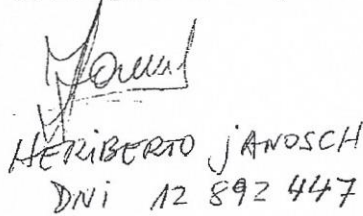 HERIBERTO jANOSCH
DNi 12 892 447